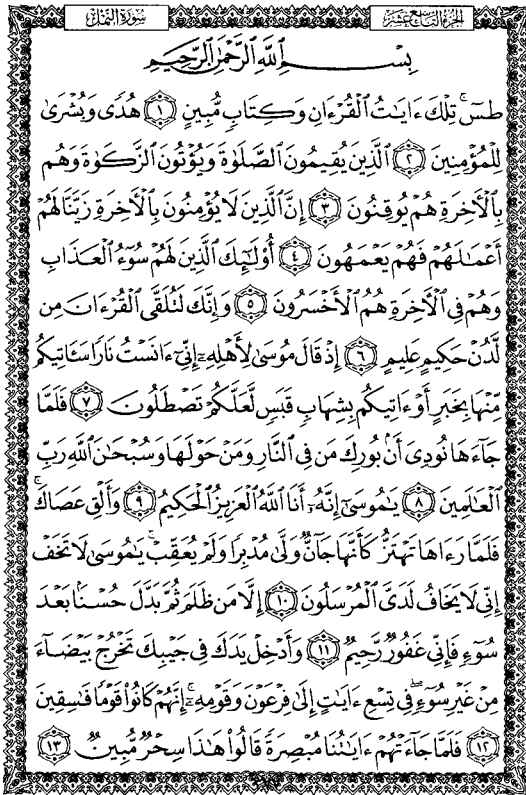 سُورَةُ النَّمْلِ
الجُزْءُ التَّاسِعَ عَشَرَ
بِسْمِ اللَّهِ الرَّحْمَٰنِ الرَّحِيمِ
طسٓۚ تِلْكَ ءَايَٰتُ ٱلْقُرْءَانِ وَكِتَابٍ مُّبِينٍ ١ هُدًى وَبُشْرَىٰ
لِلْمُؤْمِنِينَ ٢ ٱلَّذِينَ يُقِيمُونَ ٱلصَّلَوٰةَ وَيُؤْتُونَ ٱلزَّكَوٰةَ وَهُم
بِٱلْءَاخِرَةِ هُمْ يُوقِنُونَ ٣ إِنَّ ٱلَّذِينَ لَا يُؤْمِنُونَ بِٱلْءَاخِرَةِ زَيَّنَّا لَهُمْ
أَعْمَٰلَهُمْ فَهُمْ يَعْمَهُونَ ٤ أُو۟لَٰٓئِكَ ٱلَّذِينَ لَهُمْ سُوٓءُ ٱلْعَذَابِ
وَهُمْ فِى ٱلْءَاخِرَةِ هُمُ ٱلْأَخْسَرُونَ ٥ وَإِنَّكَ لَتُلَقَّى ٱلْقُرْءَانَ مِن
لَّدُنْ حَكِيمٍ عَلِيمٍ ٦ إِذْ قَالَ مُوسَىٰ لِأَهْلِهِۦٓ إِنِّىٓ ءَانَسْتُ نَارًا سَـَٔاتِيكُم
مِّنْهَا بِخَبَرٍ أَوْ ءَاتِيكُم بِشِهَابٍ قَبَسٍ لَّعَلَّكُمْ تَصْطَلُونَ ٧ فَلَمَّا
جَآءَهَا نُودِىَ أَنۢ بُورِكَ مَن فِى ٱلنَّارِ وَمَنْ حَوْلَهَا وَسُبْحَٰنَ ٱللَّهِ رَبِّ
ٱلْعَٰلَمِينَ ٨ يَٰمُوسَىٰٓ إِنَّهُۥٓ أَنَا ٱللَّهُ ٱلْعَزِيزُ ٱلْحَكِيمُ ٩ وَأَلْقِ عَصَاكَۚ
فَلَمَّا رَءَاهَا تَهْتَزُّ كَأَنَّهَا جَآنٌّ وَلَّىٰ مُدْبِرًا وَلَمْ يُعَقِّبْۚ يَٰمُوسَىٰ لَا تَخَفْ
إِنِّى لَا يَخَافُ لَدَىَّ ٱلْمُرْسَلُونَ ١٠ إِلَّا مَن ظَلَمَ ثُمَّ بَدَّلَ حُسْنًۢا بَعْدَ
سُوٓءٍ فَإِنِّى غَفُورٌ رَّحِيمٌ ١١ وَأَدْخِلْ يَدَكَ فِى جَيْبِكَ تَخْرُجْ بَيْضَآءَ
مِنْ غَيْرِ سُوٓءٍۖ فِى تِسْعِ ءَايَٰتٍ إِلَىٰ فِرْعَوْنَ وَقَوْمِهِۦٓۚ إِنَّهُمْ كَانُوا۟ قَوْمًا فَٰسِقِينَ
١٢ فَلَمَّا جَآءَتْهُمْ ءَايَٰتُنَا مُبْصِرَةً قَالُوا۟ هَٰذَا سِحْرٌ مُّبِينٌ ١٣